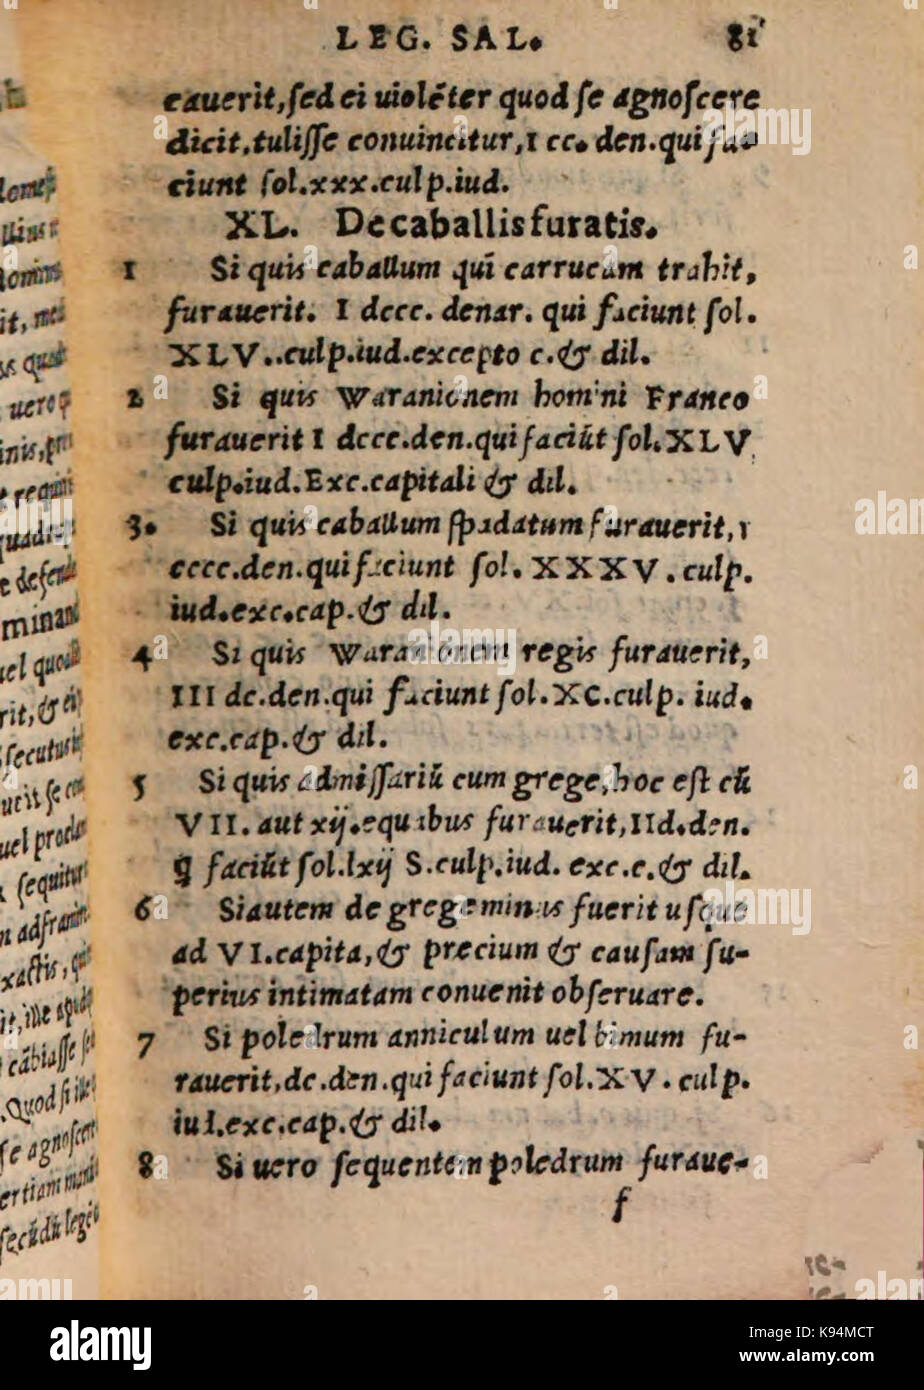 LEG. SAL. 81
cauerit, sed ei uiolēter quod se agnoscere
dicit, tulisse conuincitur, I cc. den. qui fa-
ciunt sol. xxx. culp. iud.
XL. De caballis furatis.
1 Si quis caballum qui carrucam trahit,
furauerit. I dccc. denar. qui faciunt sol.
XLV.. culp. iud. excepto c. & dil.
2 Si quis Waranionem homini Franco
furauerit I dccc. den. qui faciūt sol. XLV
culp. iud. Exc. capitali & dil.
3. Si quis caballum spadatum furauerit, I
cccc. den. qui faciunt sol. XXXV. culp.
iud. exc. cap. & dil.
4 Si quis Waranionem regis furauerit,
III dc. den. qui faciunt sol. XC. culp. iud.
exc. cap. & dil.
5 Si quis admissariū cum grege, hoc est cū
VII. aut xij. equabus furauerit, IId. den.
q̃ faciūt sol. lxij S. culp. iud. exc. c. & dil.
6 Si autem de grege minus fuerit usque
ad VI. capita, & precium & causam su-
perius intimatam conuenit obseruare.
7 Si poledrum anniculum uel bimum fu-
rauerit, dc. den. qui faciunt sol. XV. culp.
iud. exc. cap. & dil.
8 Si uero sequentem poledrum furaue-
f
uero
e requiri
minand
uel quod
rit, & ei
secutus
uel
sequitur
it, ille apud
cābiasse se
Quod si ille
se agnoscere
ertiam
secūdū legē
alamy
Image ID: K94MCT
www.alamy.com